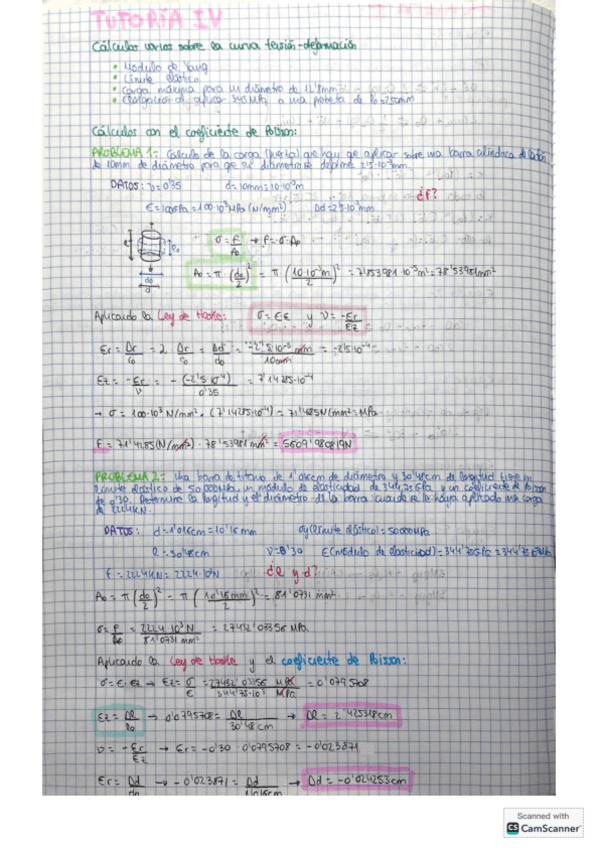 TUTORÍA IV
Cálculos varios sobre la curva tensión-deformación
• Módulo de Young
• Límite elástico
• Carga máxima para un diámetro de 12'8mm
• al aplicar 345MPa a una probeta de l0=250mm
Cálculos con el coeficiente de Poisson:
PROBLEMA 1: Cálculo de la carga (fuerza) que hay que aplicar sobre una barra cilíndrica de latón
de 10mm de diámetro para que su diámetro se deforme 2'5·10⁻³mm.
DATOS: ν=0'35 d=10mm=10·10⁻³m
¿F?
E=100GPa=100·10³MPa (N/mm²) Δd=2'5·10⁻³mm
σ = F/A0 → F=σ·A0
A0 = π·(d0/2)² = π(10·10⁻³m/2)² = 7'853981·10⁻⁵m²=78'53981mm²
Aplicando la Ley de Hooke: σ=Eε y ν=-εr/εz
εr = Δr/r0 = 2·Δr/r0 = Δd/d0 = -2'5·10⁻³mm/10mm = -2'5·10⁻⁴
εz = -εr/ν = -(-2'5·10⁻⁴)/0'35 = 7'14285·10⁻⁴
→ σ = 100·10³ N/mm² · (7'14285·10⁻⁴) = 71'4285N/mm²=MPa
F = 71'4285(N/mm²) · 78'53981 mm² = 5609'980819N
PROBLEMA 2: Una barra de titanio de 1'016cm de diámetro y 30'48cm de longitud tiene un
límite elástico de 50000MPa, un módulo de elasticidad de 344'75GPa y un coeficiente de Poisson
de 0'30. Determine la longitud y el diámetro de la barra cuando se le haya aplicado una carga
de 2224KN.
DATOS: d=1'016cm=10'16mm σy(límite elástico)=50000MPa
l=30'48cm ν=0'30 E(módulo de elasticidad)=344'75GPa=344'75·10³MPa
F=2224KN=2224·10³N ¿l y d?
A0 = π(d0/2)² = π(10'16mm/2)² = 81'0731 mm²
σ = F/A0 = 2224·10³N/81'0731 mm² = 27432'03356 MPa
Aplicando la Ley de Hooke y el coeficiente de Poisson:
σ=E·εz → εz = σ/E = 27432'03356 MPa/344'75·10³ MPa = 0'0795708
εz = Δl/l0 → 0'0795708 = Δl/30'48cm → Δl = 2'425318cm
ν = -εr/εz → εr = -0'30·0'0795708 = -0'023871
εr = Δd/d0 → -0'023871 = Δd/1'016cm → Δd = -0'024253cm
Scanned with
CS CamScanner